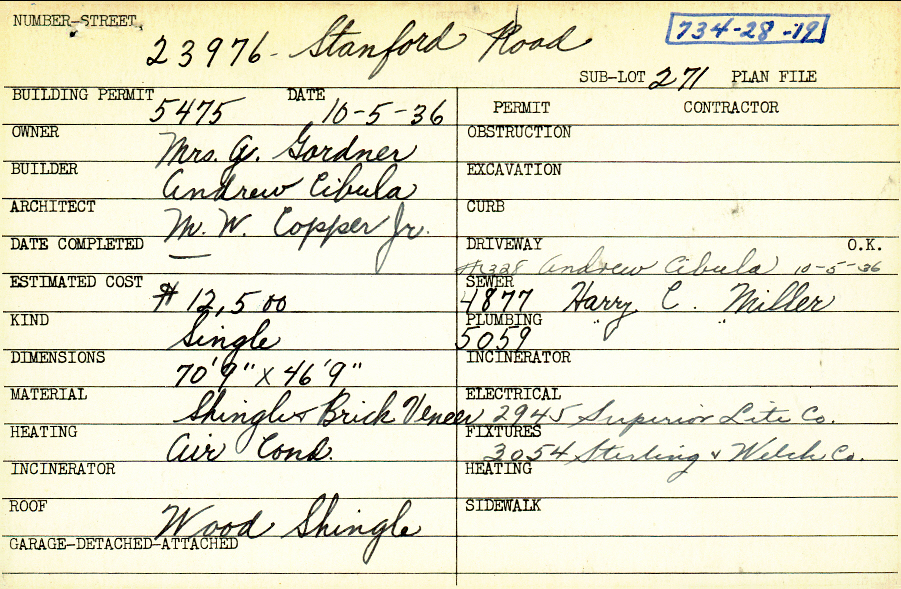 NUMBER-STREET
23976- Stanford Road
734-28-19
SUB-LOT 271 PLAN FILE
BUILDING PERMIT 5475 DATE 10-5-36
PERMIT CONTRACTOR
OWNER Mrs. G. Gordner
OBSTRUCTION
BUILDER Andrew Cibula
EXCAVATION
ARCHITECT M. W. Copper Jr.
CURB
DATE COMPLETED —
DRIVEWAY O.K.
#1328 Andrew Cibula 10-5-36
ESTIMATED COST $ 12,500
SEWER 4877 Harry C. Miller
KIND Single
PLUMBING 5059 " "
DIMENSIONS 70'9" x 46'9"
INCINERATOR
MATERIAL Shingle & Brick Veneer
ELECTRICAL 2945 Superior Lite Co.
HEATING Air Cond.
FIXTURES 3054 Sterling & Welch Co.
INCINERATOR
HEATING
ROOF Wood Shingle
SIDEWALK
GARAGE-DETACHED-ATTACHED